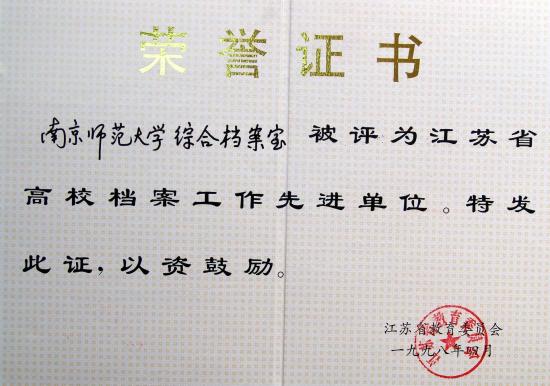 荣誉证书
南京师范大学综合档案室被评为江苏省
高校档案工作先进单位。特发
此证，以资鼓励。
江苏省教育委员会
一九九八年四月